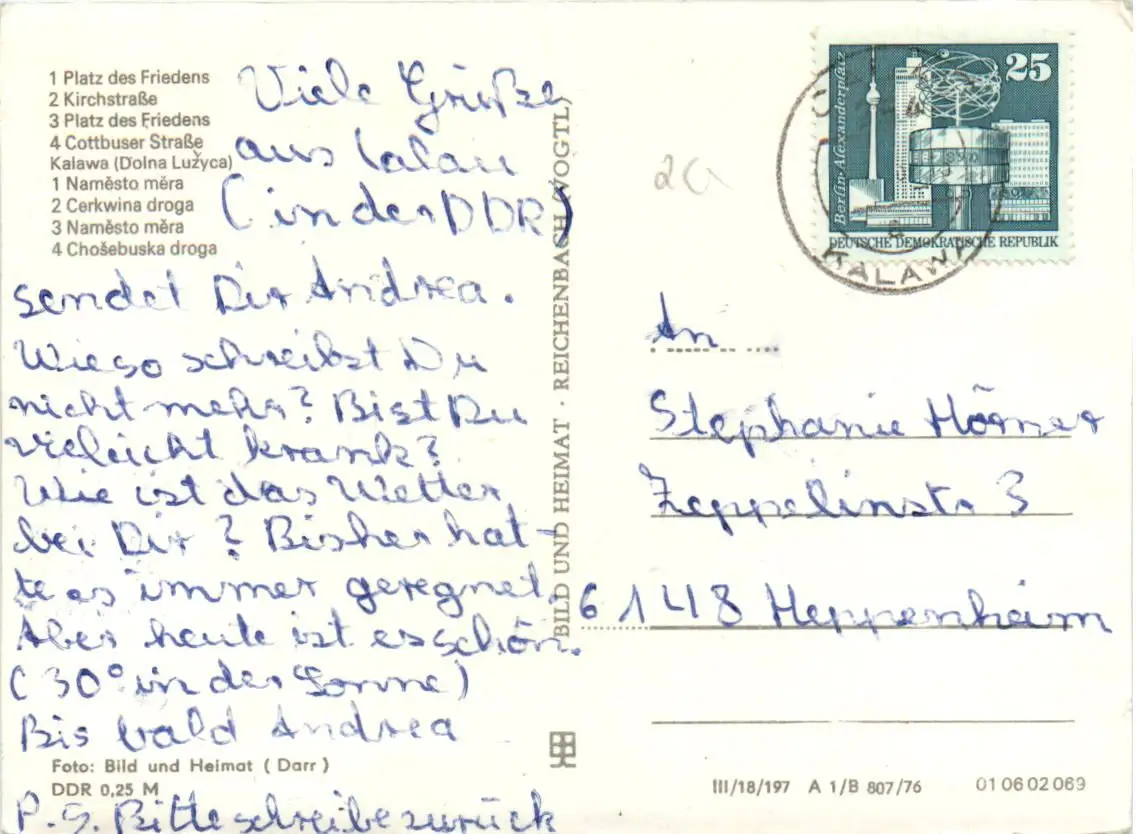 1 Platz des Friedens
2 Kirchstraße
3 Platz des Friedens
4 Cottbuser Straße
Kalawa (Dolna Lužyca)
1 Naměsto měra
2 Cerkwina droga
3 Naměsto měra
4 Chošebuska droga
Viele Grüße
aus Calau
(in der DDR)
sendet Dir Andrea.
Wieso schreibst Du
nicht mehr? Bist Du
vieleicht krank?
Wie ist das Wetter
bei Dir? Bisher hat-
te es immer geregnet.
Aber heute ist es schön.
(30° in der Sonne)
Bis bald Andrea
Foto: Bild und Heimat (Darr)
DDR 0,25 M
P.S. Bitte schreibe zurück
BILD UND HEIMAT · REICHENBACH (VOGTL)
Berlin-Alexanderplatz
25
DEUTSCHE DEMOKRATISCHE REPUBLIK
KALAWA
An
Stephanie Hörner
Zeppelinstr 3
6148 Heppenheim
III/18/197 A 1/B 807/76 01 06 02 069